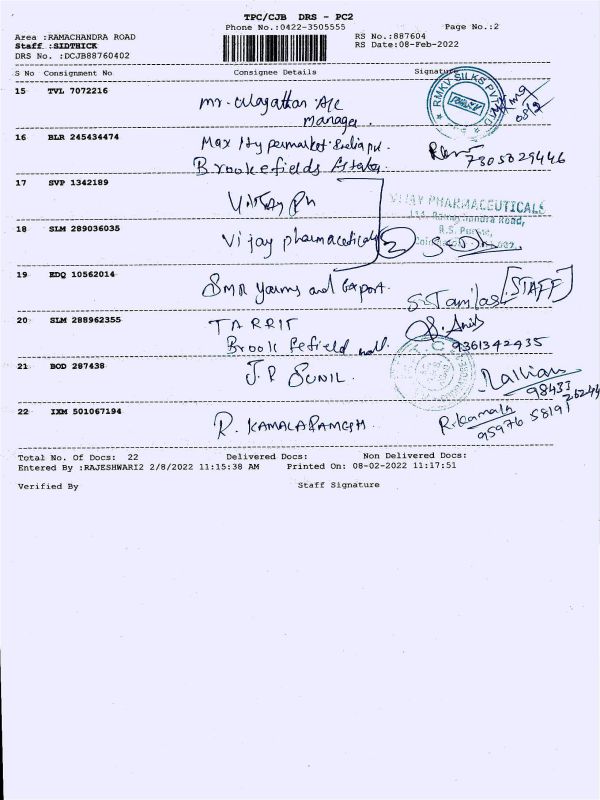 TPC/CJB DRS - PC2
Phone No.:0422-3505555 Page No.:2
Area :RAMACHANDRA ROAD RS No.:887604
Staff :SIDTHICK RS Date:08-Feb-2022
DRS No. :DCJB88760402
S No Consignment No Consignee Details Signature
15 TVL 7072216 Mr. A/c
manager.
RMKV SILKS PVT LTD
16 BLR 245434474 Max Hypermarket
Brookefields 7305029446
17 SVP 1342189 Vijay Ph
VIJAY PHARMACEUTICALS
R.S. Puram,
18 SLM 289036035 Vijay pharmaceuticals 2
19 EDQ 10562014 SMR yarns and Export. S. Tamilas [STAFF]
20 SLM 288962355 TARRIT S. Anis
Brook fefield mall. 9361342435
21 BOD 287438 J.P SUNIL.
98433 26244
22 IXM 501067194 R. KAMALARAMESH. R. Kamala
95976 58191
Total No. Of Docs: 22 Delivered Docs: Non Delivered Docs:
Entered By :RAJESHWARI2 2/8/2022 11:15:38 AM Printed On: 08-02-2022 11:17:51
Verified By Staff Signature